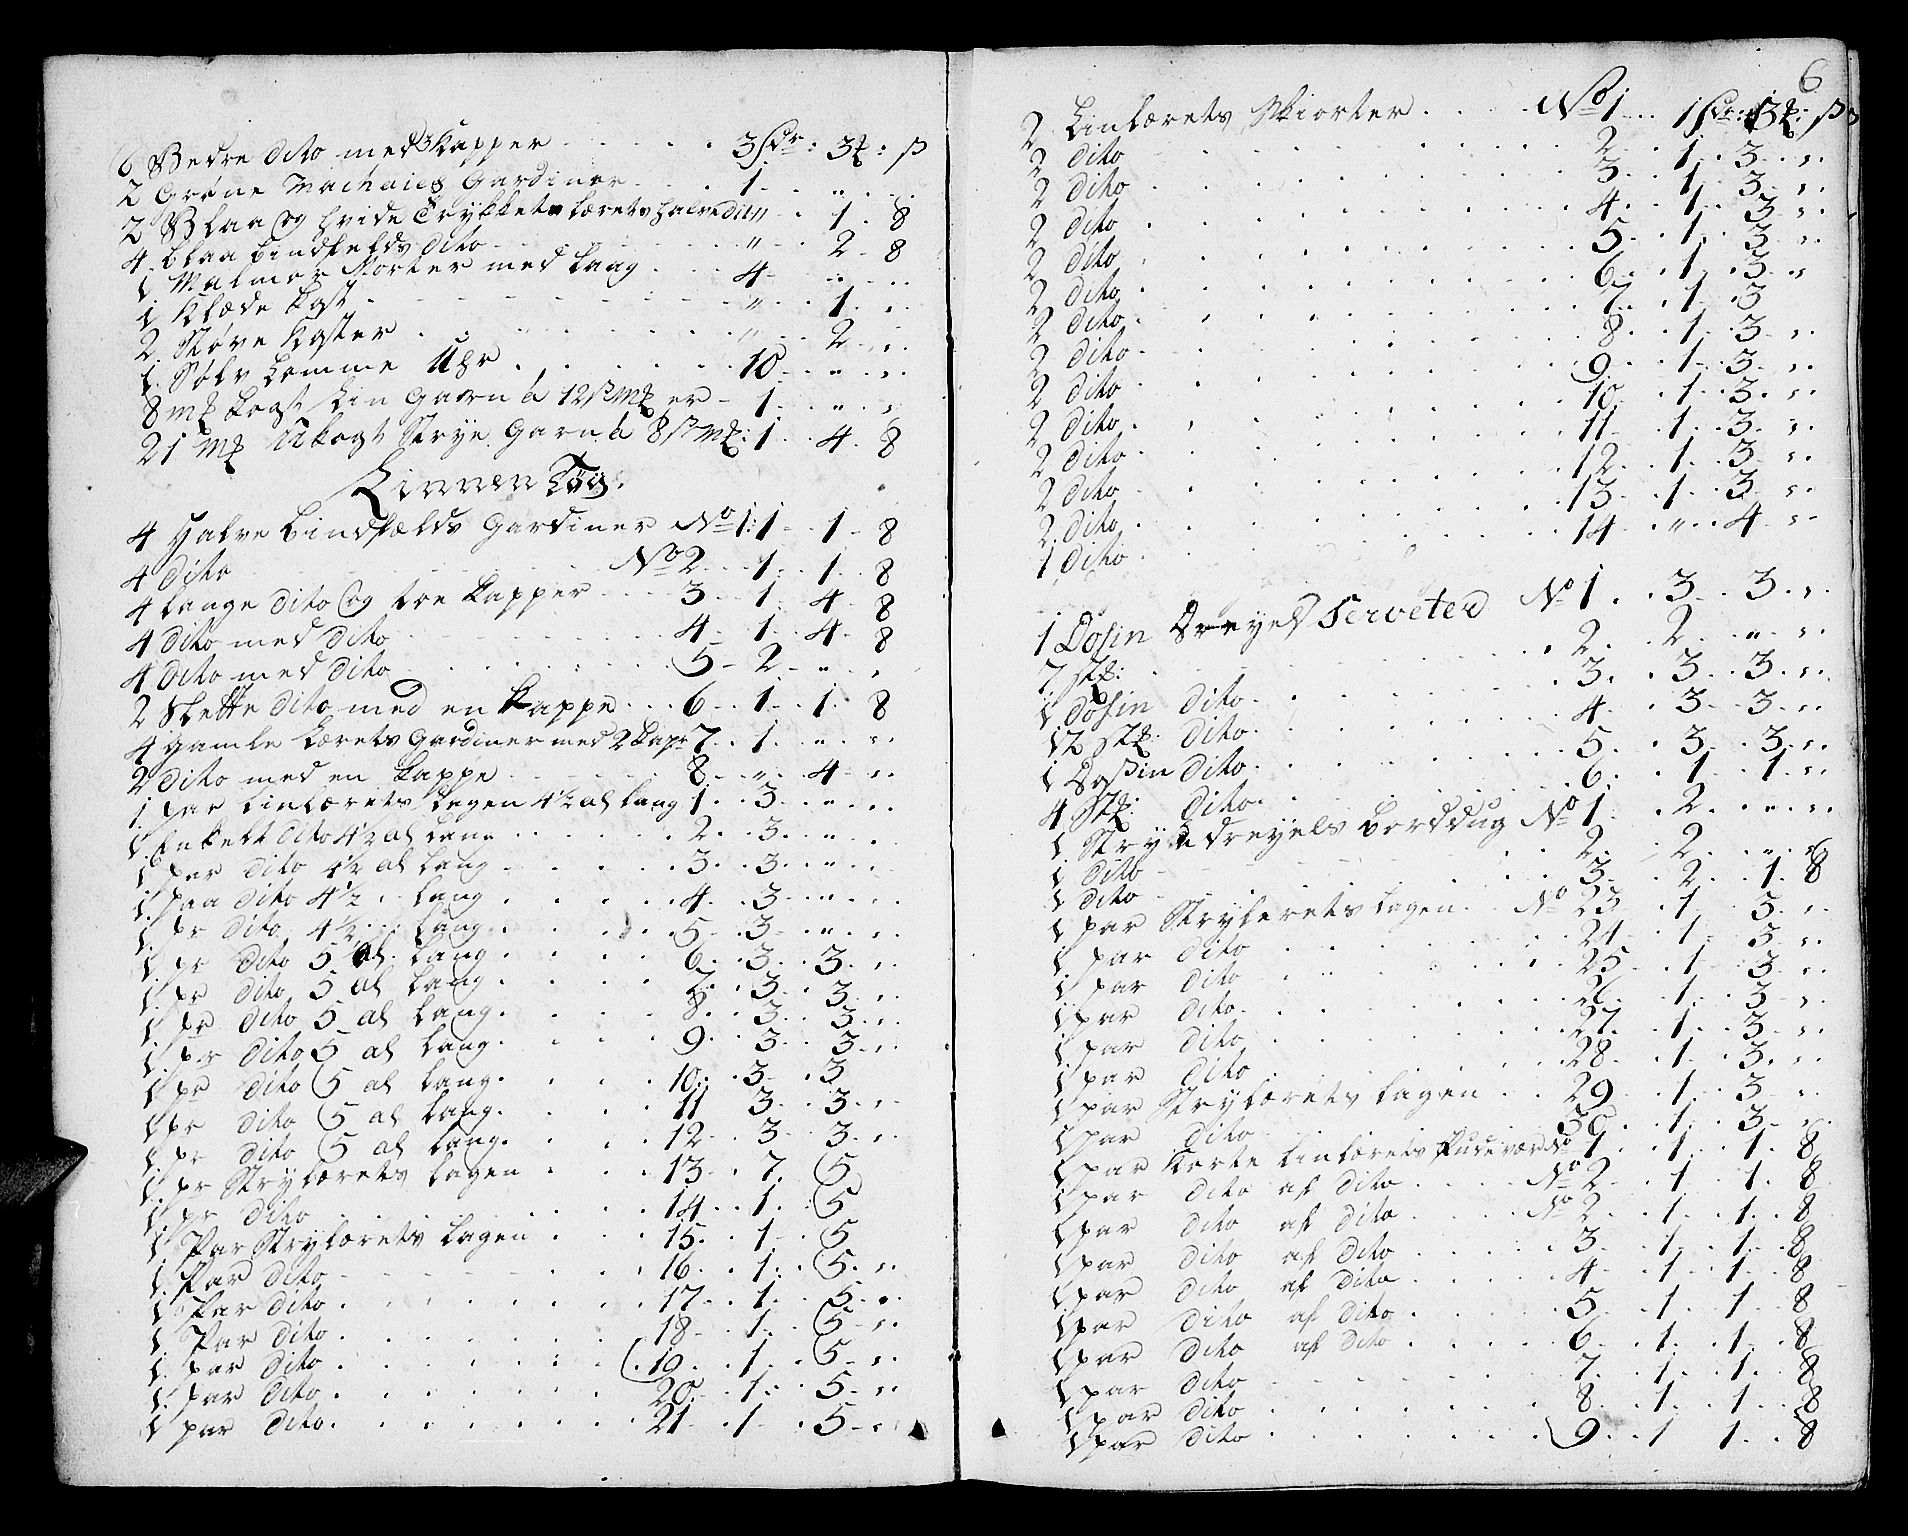 6 Bedre dito med Kapper . . . . 3 Sdr: 3 ꝶ: ß
2 Grøne Machaies Gardiner . . . 1 . „ . .
2 Blaa og hvide Trykket lærets halve dito „ . 1 . 8
4 blaa bindfelds dito . . . „ . 2 . 8
1 Malmer Morter med laag . . . 4 . „ . .
1 Klæde Kost . . . „ . 1 . „
2 Støve Koster . . . „ . 2 . „
1 Sølv Lomme Uhr . . . 10 . „ . „
8 mꝶ kogt Lin Garn á 12 ß mꝶ er - 1 . „ . „
21 mꝶ Ukogt Strye Garn á 8 ß mꝶ: 1 . 4 . 8
Linnen Tøg:
4 Halve bindfælds Gardiner No 1: 1 . 1 . 8
4 dito No 2 . 1 . 1 . 8
4 lange dito og toe kapper . . 3 . 1 . 4 . 8
4 dito med dito . . . 4 . 1 . 4 . 8
4 dito med dito . . . 5 . 2 . „ . „
2 Slette dito med en kappe . . 6 . 1 . 1 . 8
4 gamle Lærets Gardiner med 2 kapr 7 . 1 . „ . „
2 dito med en kappe . . . 8 . „ . 4 . „
1 par linlærets Lagen 4½ al lang 1 . 3 . „ . „
1 Enkelt dito 4½ al lang . . . 2 . 3 . „ . „
1 par dito 4½ al lang . . . 3 . 3 . „ . „
1 paa dito 4½ . . lang . . . 4 . 3 . „ . „
1 pr dito 4½ . . lang . . . 5 . 3 . „ . „
1 pr dito 5 al. lang . . . 6 . 3 . 3 . „
1 pr dito 5 al lang . . . 7 . 3 . 3 . „
1 pr dito 5 al lang . . . 8 . 3 . 3 . „
1 pr dito 5 al lang . . . 9 . 3 . 3 . „
1 pr dito 5 al lang . . . 10 . 3 . 3
1 pr dito 5 al lang . . . 11 . 3 . 3 . „
1 pr dito 5 al lang . . . 12 . 3 . 3 . „
1 pr Strylærets lagen . . . 13 . 7 . 5
1 pr dito . . . 14 . 1 . 5
1 Par Strylærets Lagen . . . 15 . 1 . 5
1 Par dito . . . 16 . 1 . 5 . „
1 Par dito . . . 17 . 1 . 5 . „
1 Par dito . . . 18 . 1 . 5 . „
1 par dito . . . 19 . 1 . 5 . „
1 par dito . . . 20 . 1 . 5 . „
1 par dito . . . 21 . 1 . 5 . „
6
2 Linlærets Skiorter . . . No 1 . . 1 Sdr: 3 ꝶ: ß
2 dito . . . 2 . 1 . 3 . „
2 dito . . . 3 . 1 . 3 . „
2 dito . . . 4 . 1 . 3 . „
2 dito . . . 5 . 1 . 3 . „
2 dito . . . 6 . 1 . 3 . „
2 dito . . . 7 . 1 . 3
2 dito . . . 8 . 1 . 3 . „
2 dito . . . 9 . 1 . 3 . „
2 dito . . . 10 . 1 . 3 . „
2 dito . . . 11 . 1 . 3 . „
2 dito . . . 12 . 1 . 3 . „
2 dito . . . 13 . 1 . 3 . „
1 dito . . . 14 . „ . 4 . „
1 Dosin Dreyels Serveter No 1 . . 3 . 3 . „
7 stꝶ: . . . 2 . 2 . „ . „
1 dosin dito . . . 3 . 3 . 3 . „
12 stꝶ: dito . . . 4 . 3 . 3 . „
1 Dosin dito . . . 5 . 3 . 3 . „
4 stꝶ: dito . . . 6 . 1 . 1 . „
1 Strye dreyels borddug No 1 . 2 . „ . „
1 dito . . . 2 . 2 . „ . „
1 dito . . . 3 . 2 . 1 . 8
1 par Strylerets lagen . . No 23 . 1 . 3 . „
1 par dito . . . 24 . 1 . 3 . „
1 par dito . . . 25 . 1 . 3 . „
1 par dito . . . 26 . 1 . 3 . „
1 par dito . . . 27 . 1 . 3 . „
1 par dito . . . 28 . 1 . 3 . „
1 par Strylærets lagen . . 29 . 1 . 3 . „
1 par dito . . . 30 . 1 . 3 . „
1 par korte linlærets Pudevær No 1 . 1 . 1 . 8
1 par dito af dito . . . No 2 . 1 . 1 . 8
1 par dito af dito . . . No 2 . 1 . 1 . 8
1 par dito af dito . . . 3 . 1 . 1 . 8
1 par dito af dito . . . 4 . 1 . 1 . 8
1 par dito af dito . . . 5 . 1 . 1 . 8
1 par dito af dito . . . 6 . 1 . 1 . 8
1 par dito . . . 7 . 1 . 1 . 8
1 par dito . . . 8 . 1 . 1 . 8
1 par dito . . . 9 . 1 . 1 . 8